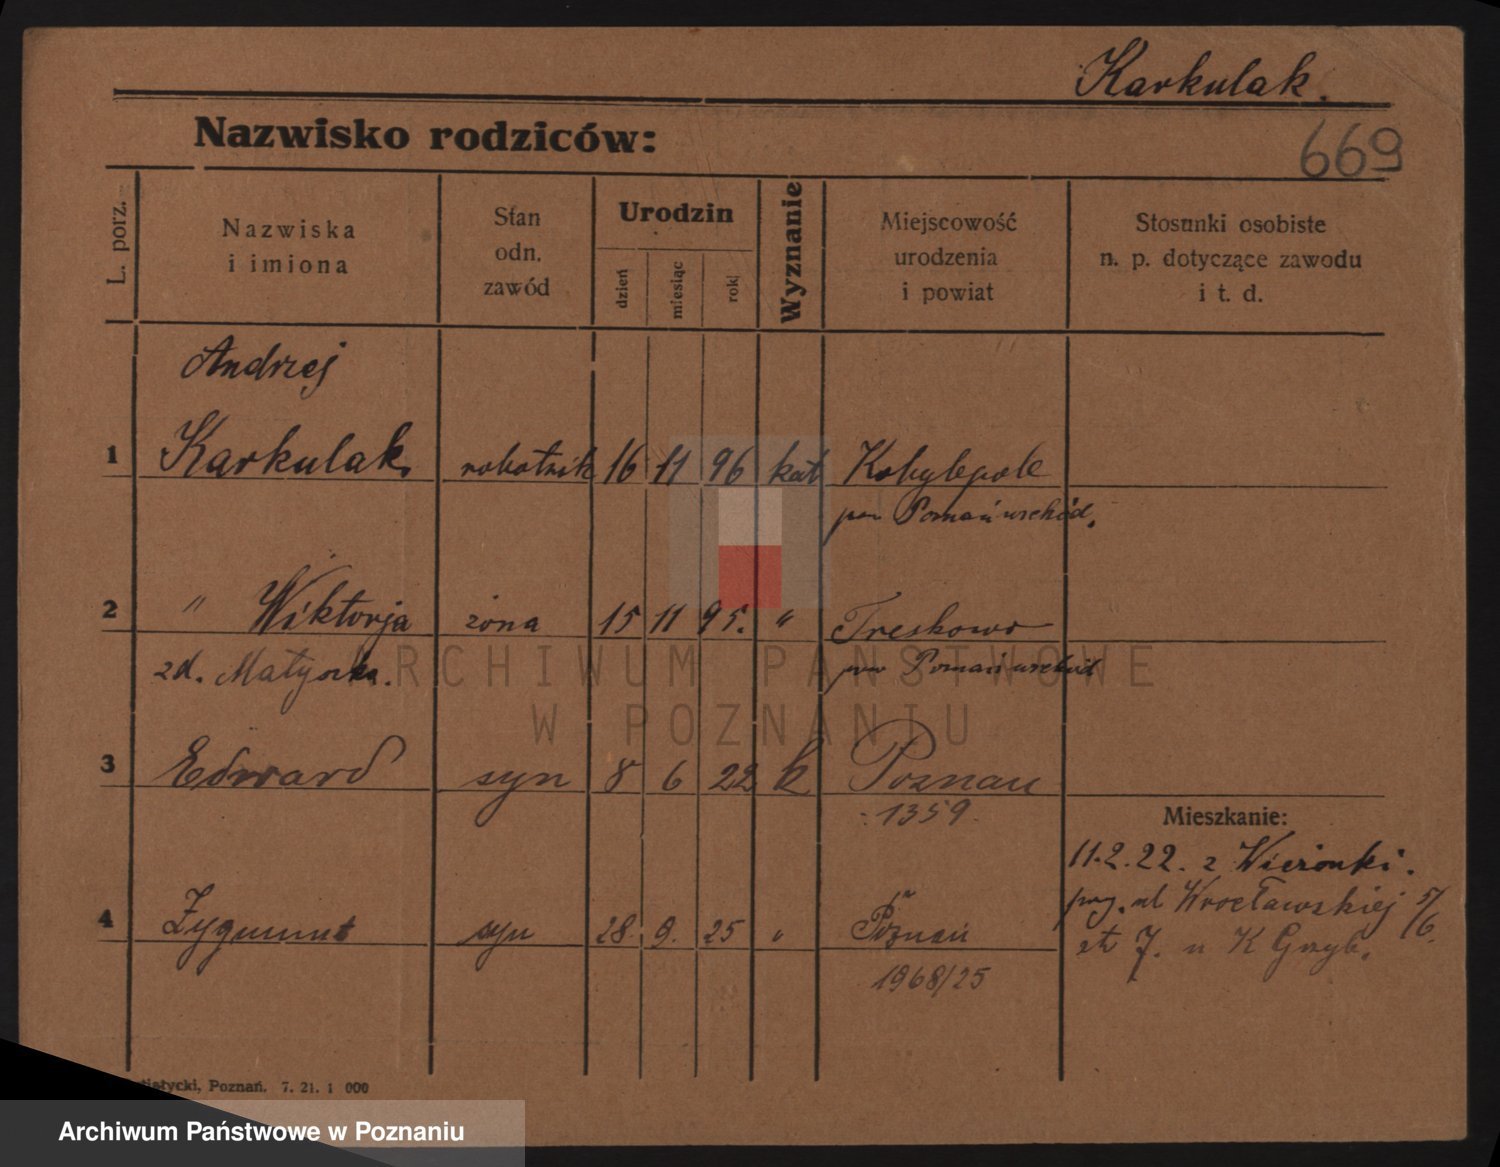 Karkulak.
Nazwisko rodziców:
669
L. porz.
Nazwiska
i imiona
Stan
odn.
zawód
Urodzin
dzień
miesiąc
rok
Wyznanie
Miejscowość
urodzenia
i powiat
Stosunki osobiste
n. p. dotyczące zawodu
i t. d.
Andrzej
1 Karkulak. robotnik 16 11 96 kat Kobylepole
pow Poznań wschód.
2 " Wiktorja żona 15 11 95. " Treskowo
zd. pow Poznań wschód
3 Edward syn 8 6 22 k Poznań
1359.
Mieszkanie:
11.2.22. z
4 Zygmunt syn 28. 9. 25 " Poznań
ul Wrocławskiej 5/6.
1968/25
Poznań. 7. 21. 1 000
ARCHIWUM PAŃSTWOWE
W POZNANIU
Archiwum Państwowe w Poznaniu